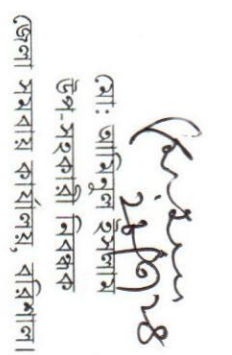 মোঃ আমিনুল ইসলাম
উপ-সহকারী নিবন্ধক
জেলা সমবায় কার্যালয়, বরিশাল।